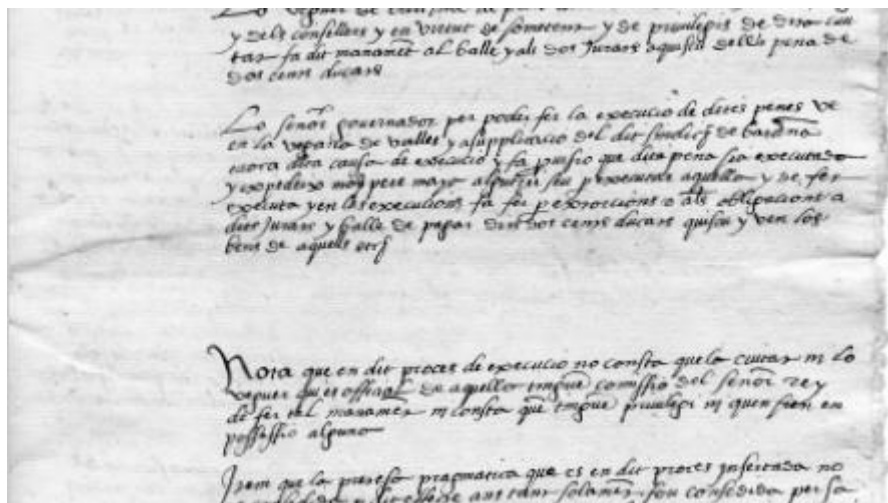 Lo veguer de
y dels consellers y en virtut de sometent y de privilegis de dita ciu
tat fa dit manamet al balle y als dos Jurats aquiscu dells pena de
dos cents ducats
Lo señor governador per poder fer la execucio de dites penes ve
en la vegaria de valles y a supplicacio del dit sindich de
dita causa de execucio y fa que dita pena sia executada
y expedeix pere aquella y de fer
executa y en les executions fa fer o als obligacions a
dits Jurats y balle de pagar dits dos cents ducats quiscu y ven los
bens de aquells etc
Nota que en dit proces de execucio no consta que la ciutat ni lo
veguer qui es official de aquella tingue comissio del señor rey
de fer tal manamet ni consta que tingue privilegi ni quen sien en
possessio alguna
Item que la pretesa pragmatica que es en dit proces insertada no
ans tant solamet fou concedida per sa